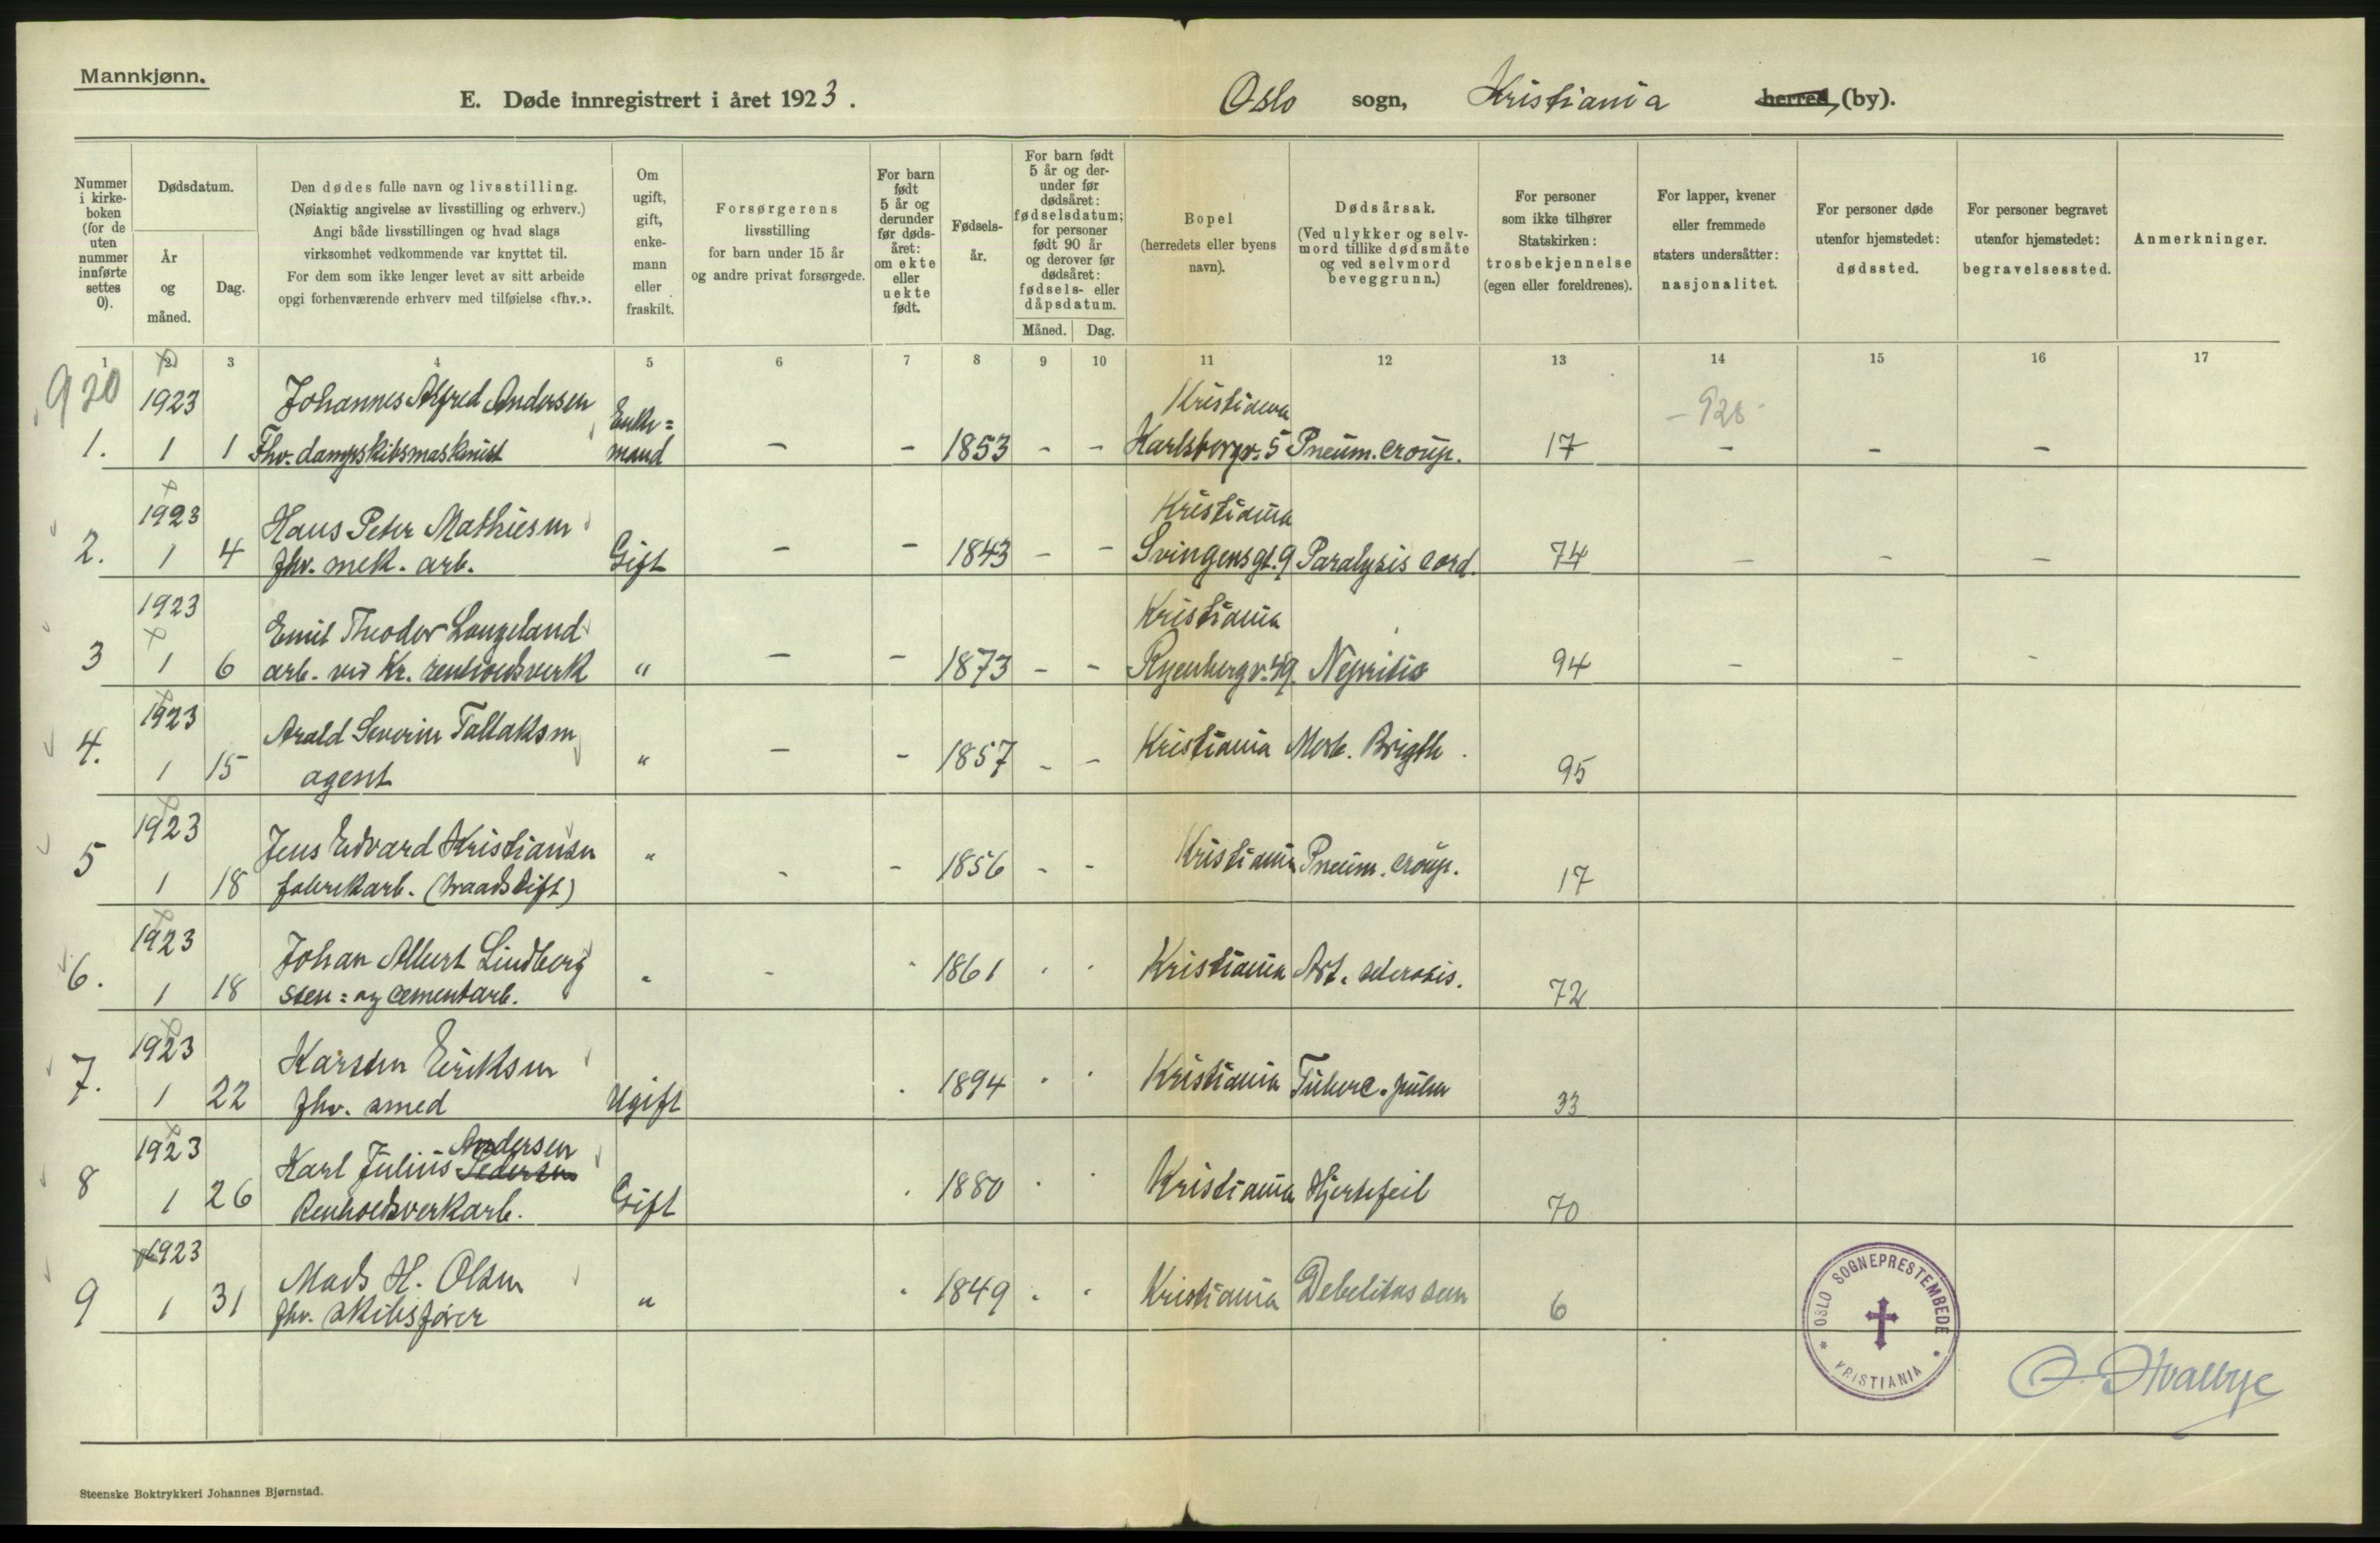 Mannkjønn.
E. Døde innregistrert i året 1923.
Oslo sogn, Kristiania herred, (by).
Nummer
i kirke-
boken
(for de
uten
nummer
innførte
settes
0).
Dødsdatum.
År
og
måned.
Dag.
Den dødes fulle navn og livsstilling.
(Nøiaktig angivelse av livsstilling og erhverv.)
Angi både livsstillingen og hvad slags
virksomhet vedkommende var knyttet til.
For dem som ikke lenger levet av sitt arbeide
opgi forhenværende erhverv med tilføielse «fhv.».
Om
ugift,
gift,
enke-
mann
eller
fraskilt.
Forsørgerens
livsstilling
for barn under 15 år
og andre privat forsørgede.
For barn
født
5 år og
derunder
før døds-
året:
om ekte
eller
uekte
født.
Fødsels-
år.
For barn født
5 år og der-
under før
dødsåret:
fødselsdatum;
for personer
født 90 år
og derover før
dødsåret:
fødsels- eller
dåpsdatum.
Måned. Dag.
Bopel
(herredets eller byens
navn).
Dødsårsak.
(Ved ulykker og selv-
mord tillike dødsmåte
og ved selvmord
beveggrunn.)
For personer
som ikke tilhører
Statskirken:
trosbekjennelse
(egen eller foreldrenes).
For lapper, kvener
eller fremmede
staters undersåtter:
nasjonalitet.
For personer døde
utenfor hjemstedet:
dødssted.
For personer begravet
utenfor hjemstedet:
begravelsessted.
Anmerkninger.
1 2 3 4 5 6 7 8 9 10 11 12 13 14 15 16 17
920 1923 Johannes Alfred Andersen Enke= Kristiania - 928 -
1. 1 1 Fhv. dampskibsmaskinist mand - - 1853 - - Karlsborgv. 5 Pneum. croup. 17 - - -
1923 Hans Peter Mathiesen Kristiania
2. 1 4 fhv. mek. arb. Gift - - 1843 - - Svingensgt. 9 Paralysis cord. 74 - - -
1923 Emil Theodor Langeland Kristiania
3 1 6 arb. ved Kr. renholdsverk " - - 1873 - - Ryenbergv. 49. Nefritis 94 - - -
1923 Arald Severin Tallaksen
4. 1 15 agent " - - 1857 - - Kristiania Morb. Brigth. 95
1923 Jens Edvard Kristiansen
5 1 18 fabrikarb. (traadstift) " - - 1856 - - Kristiania Pneum. croup. 17
1923 Johan Albert Lindberg
6. 1 18 sten= og cementarb. " - - 1861 - - Kristiania Art. sclerosis. 72
1923 Karsten Eriksen
7. 1 22 fhv. smed Ugift - 1894 - - Kristiania Tuberc. pulm 33
1923 Karl Julius Pedersen Andersen
8 1 26 Renholdsverkarb. Gift - 1880 - - Kristiania Hjertefeil 70
1923 Mads H. Olsen
9 1 31 fhv. skibsfører " - 1849 - - Kristiania Debelitas sen 6
* OSLO SOGNEPRESTEMBEDE * KRISTIANIA
O. Hvalbye
Steenske Boktrykkeri Johannes Bjørnstad.